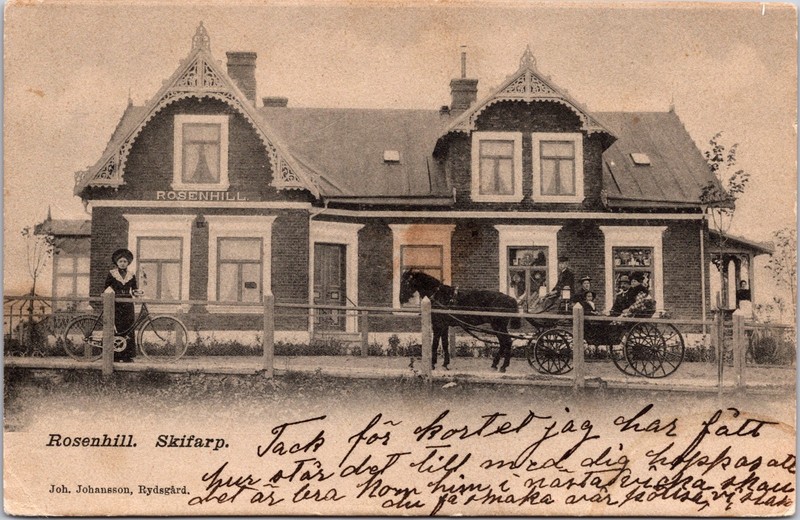 ROSENHILL.
Rosenhill. Skifarp.
Joh. Johansson, Rydsgård.
Tack för kortet jag har fått
hur står det till med dig hoppas att
det är bra kom him i nästa vicka skau
du få smaka vår